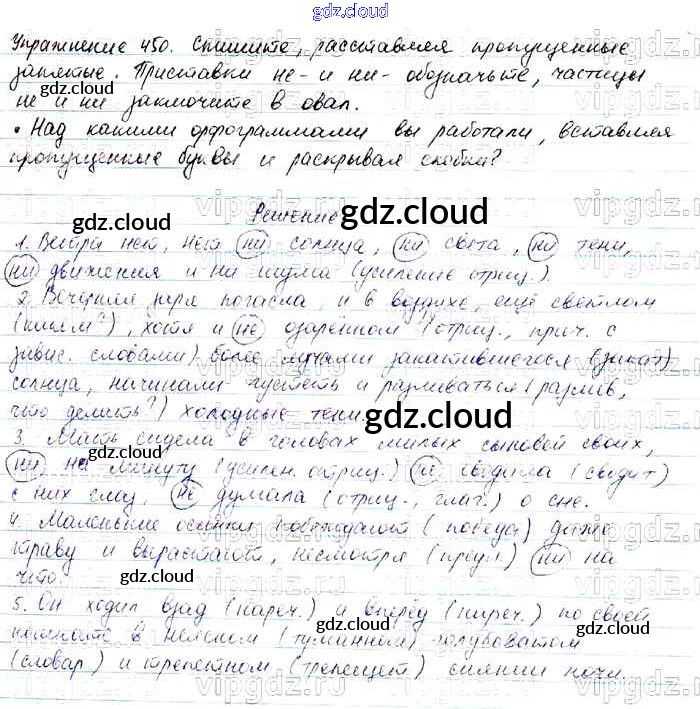 gdz.cloud
Упражнение 450. Спишите, расставляя пропущенные
запятые. Приставки не- и ни- обозначьте, частицы
не и ни заключите в овал.
• Над какими орфограммами вы работали, вставляя
пропущенные буквы и раскрывая скобки?
Решение
1. Ветра нет, нет ни солнца, ни света, ни тени,
ни движения и ни шума (усиление отриц.).
2. Вечерняя заря погасла, и в воздухе, ещё светлом
(каком?), хотя и не озарённом (отриц., прич. с
завис. словами) более лучами закатившегося (закат)
солнца, начинали густеть и разливаться (разлив,
что делать?) холодные тени.
3. Мать сидела в головах милых сыновей своих,
ни на минуту (усилен. отриц.) не сводила (сводит)
с них глаз, не думала (отриц., глаг.) о сне.
4. Маленькие осинки побеждают (победа) даже
траву и вырастают, несмотря (предл.) ни на
что.
5. Он ходил взад (нареч.) и вперёд (нареч.) по своей
комнате в неясном (туманном) голубоватом
(словар) и трепетном (трепещет) сиянии ночи.